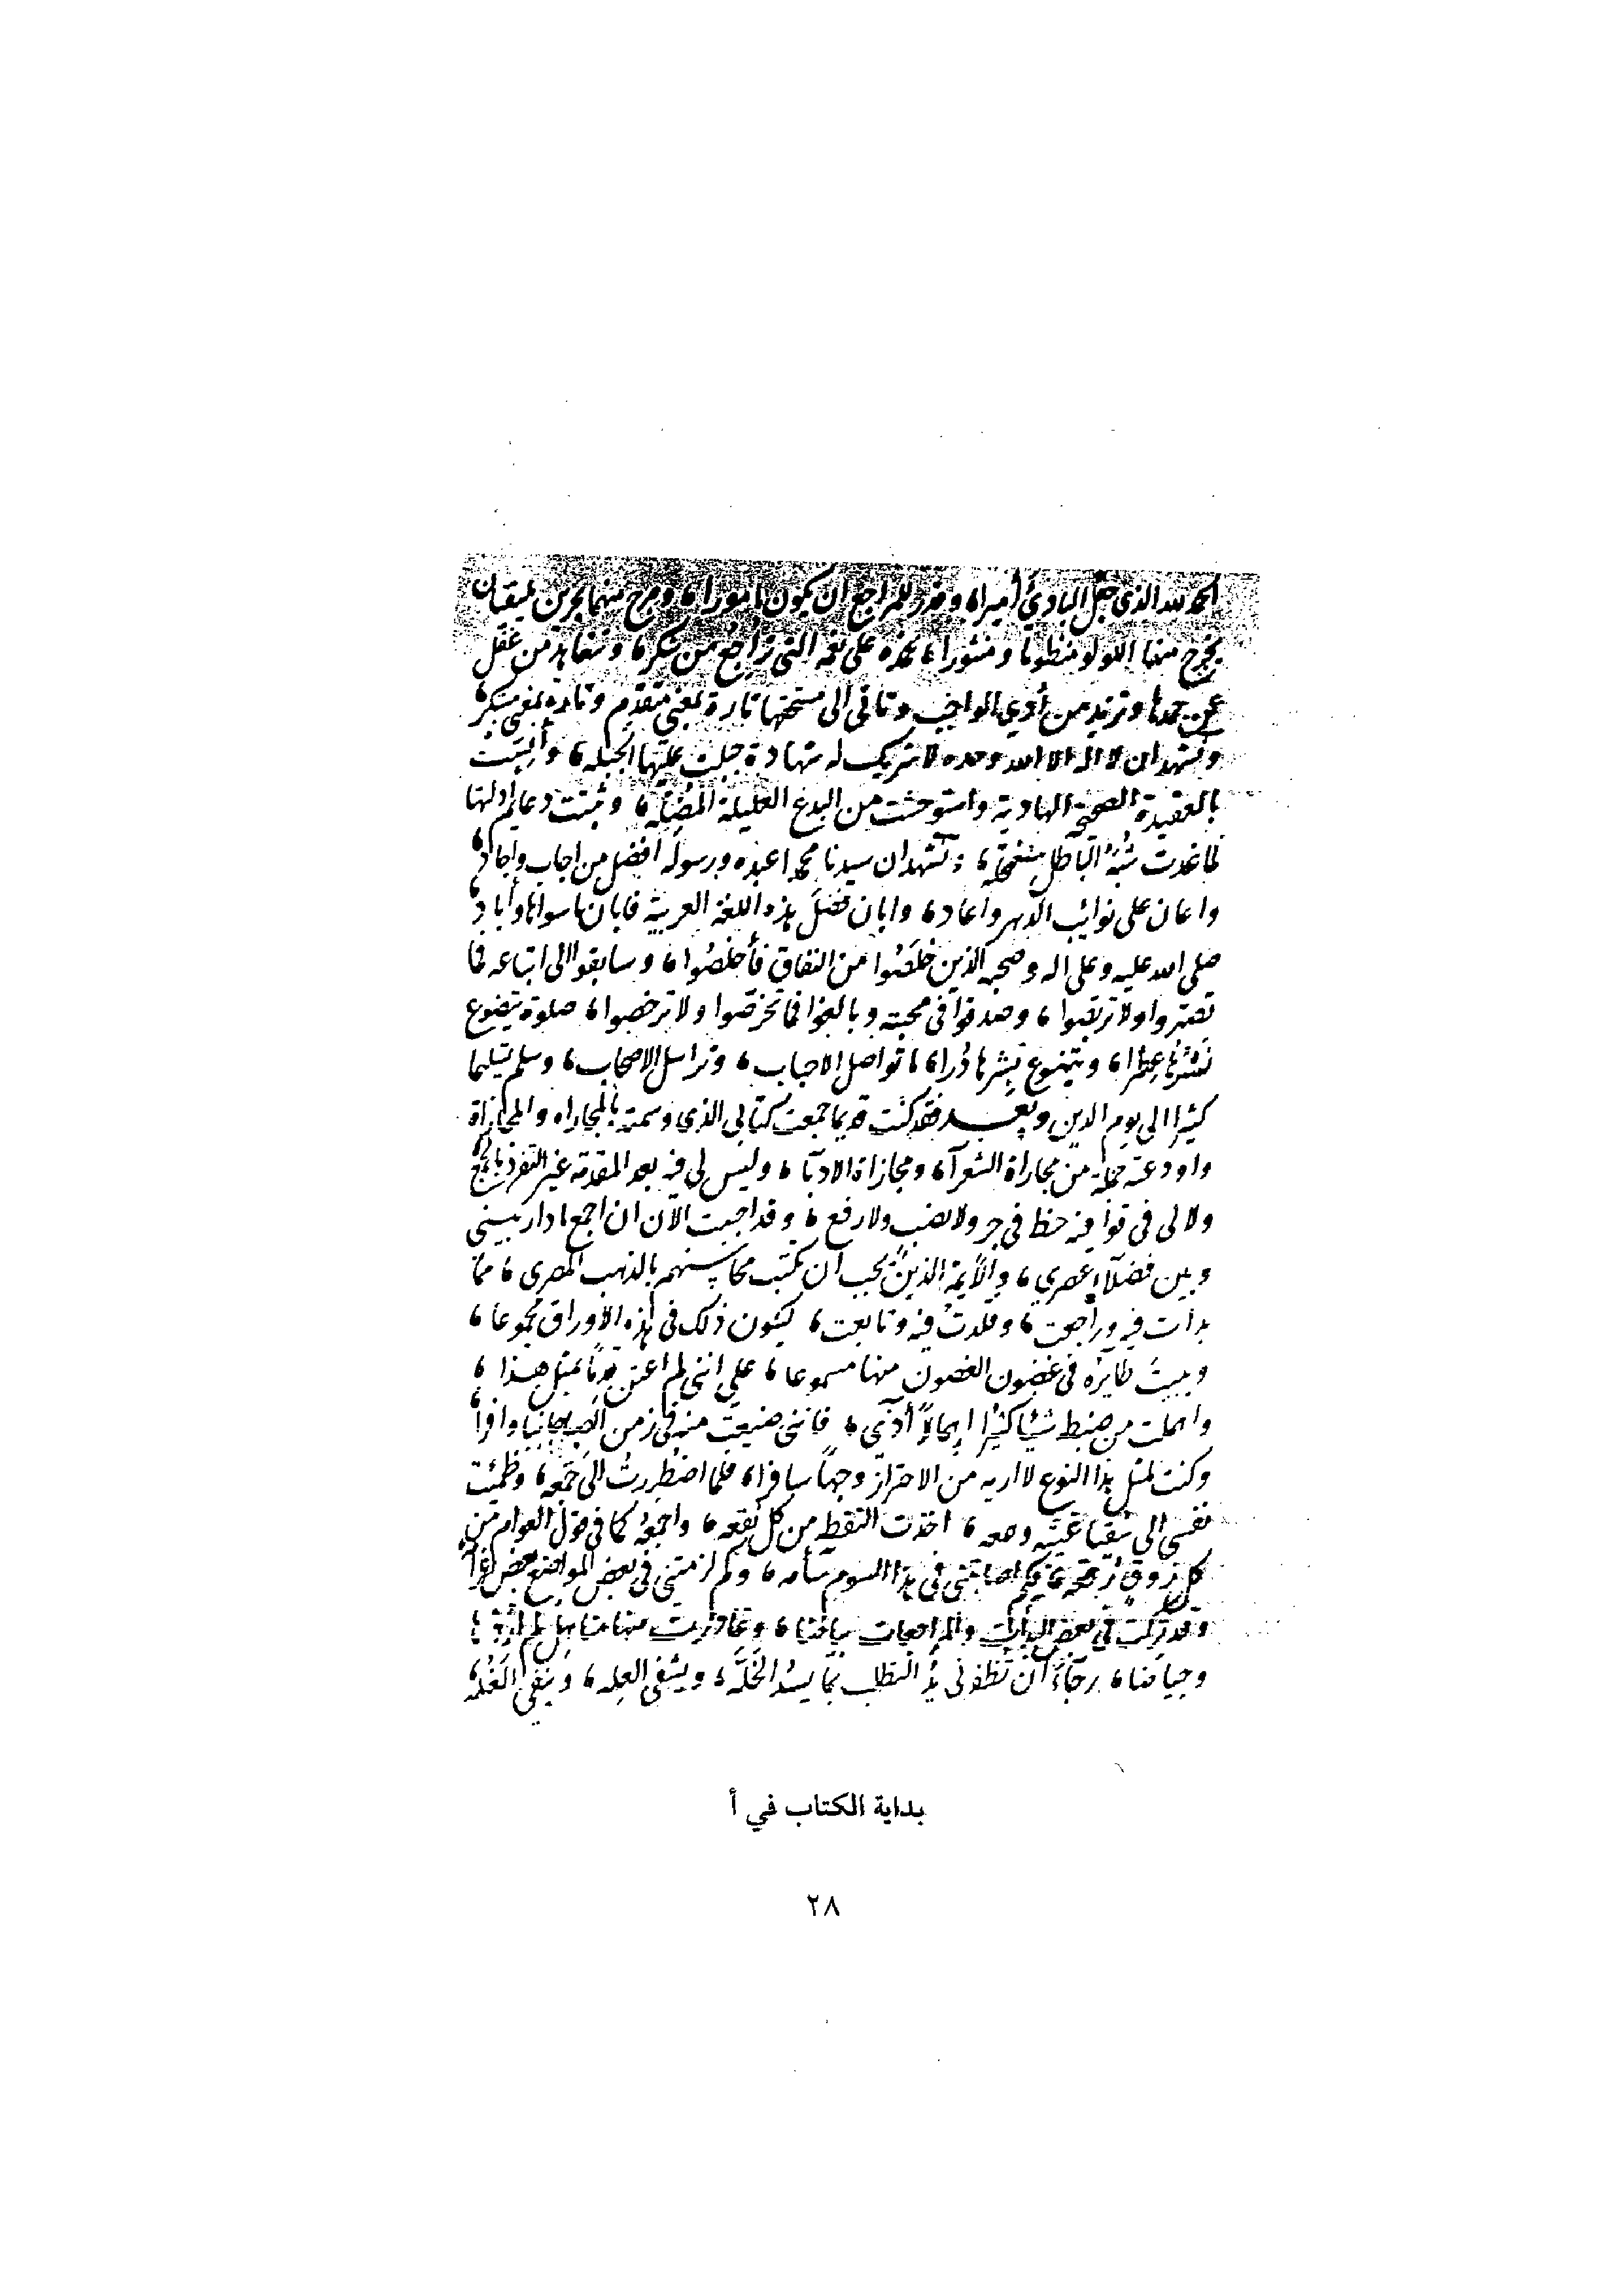 الحمد لله الذي جعل البادئ أميرا، وقدر للمراجع ان يكون مأمورا، ومرج منهما بحرين يلتقيان
يخرج منهما اللولو منظوما ومنثورا، نحمده على نعمه التي تراجع من شكر، وتتعاهد من غفل
عن حمدها وتزيد من أدي الواجب وتاتي الى مستحقها تارة بمعنى متقدم وتارة بمعنى مبتكر،
ونشهد ان لا اله الا الله وحده لا شريك له شهادة جبلت عليها الجبله، وأنست
بالعقيدة الصحيحة الهادية واستوحشت من البدع العليلة المضلة، وثبتت دعايم ادلتها
فما غدت شبه الباطل مضمحلة، ونشهد ان سيدنا محمدا عبده ورسوله افضل من اجاب واجاد،
واعان على نوائب الدهر واعاد، وابان فضل هذه اللغة العربية فابان ما سواها وأباد،
صلى الله عليه وعلى اله وصحبه الذين خلصوا من النفاق فأخلصوا، وسابقوا الى اتباعه فما
قصروا ولا تربصوا، وصدقوا في محبته وبالغوا فما تخرصوا ولا ترخصوا، صلوة يتضوع
نشرها عطرا، ويتنوع بشرها درا، ما تواصل الاحباب، وتراسل الاصحاب، وسلم تسليما
كثيرا الى يوم الدين وبعد فقد كنت قديما جمعت كتابي الذي وسمته بالمجاراه والمجازاة
واودعته جملة من مجاراة الشعرآء، ومجازاة الادبا، وليس لي فيه بعد المقدمة غير التفرد بالجمع
ولا لي في قوافيه حظ في جر ولا نصب ولا رفع، وقد احببت الآن ان اجمع ما دار بيني
وبين فضلآء عصري، والأيمة الذين يجب ان تكتب محاسنهم بالذهب المصري، مما
بدات فيه وراجعت، وقلدت فيه وتابعت، ليكون ذلك في هذه الاوراق مجموعا،
ويبيت طايره في غضون الغصون منها مسموعا، على انني لم اعتن قديما بمثل هذا،
واهملت من ضبطه شيئا كثيرا إهمالا أذى، فانني ضيعت منه في زمن الصبا جانبا وافرا
وكنت لمثل هذا النوع لا اريه من الاحتراز وجها سافرا، فلما اضطررت الى جمعه، وظمئت
نفسي الى سقيا غيثه وهمعه، اخذت التقط من كل بقعه، واجمع كما في قول العوام من
كل زوق رقعة، فكم اصابتني في هذا السوم سأمه، وكم لزمتني في بعض المواضع بعض
وقد تركت في بعض البدآت والمراجعات بياضا، وغادرت منها مناهل لم
وحياضا، رجآء أن تظفرني يد التطلب بما يسد الخلة، ويشفي العله، وينفي الغله
بداية الكتاب في أ
٢٨